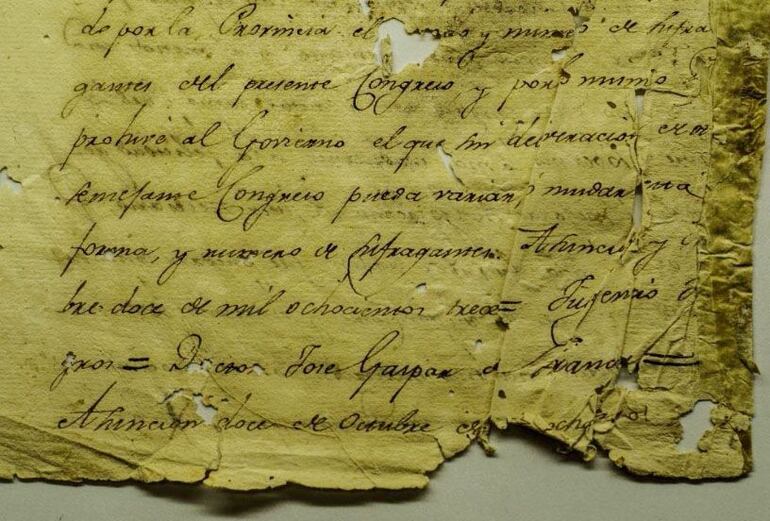 do por la Provincia el modo y numero de sufra
gantes del presente Congreso y por lo mismo
prohive al Govierno el que sin deliveración de otro
semejante Congreso pueda variar ó mudar esta
forma, y numero de sufragantes. Asuncion y
bre doce de mil ochocientos trece = Fulgencio
gros = Doctor Jose Gaspar de Franc
Asuncion doce de Octubre de ocho